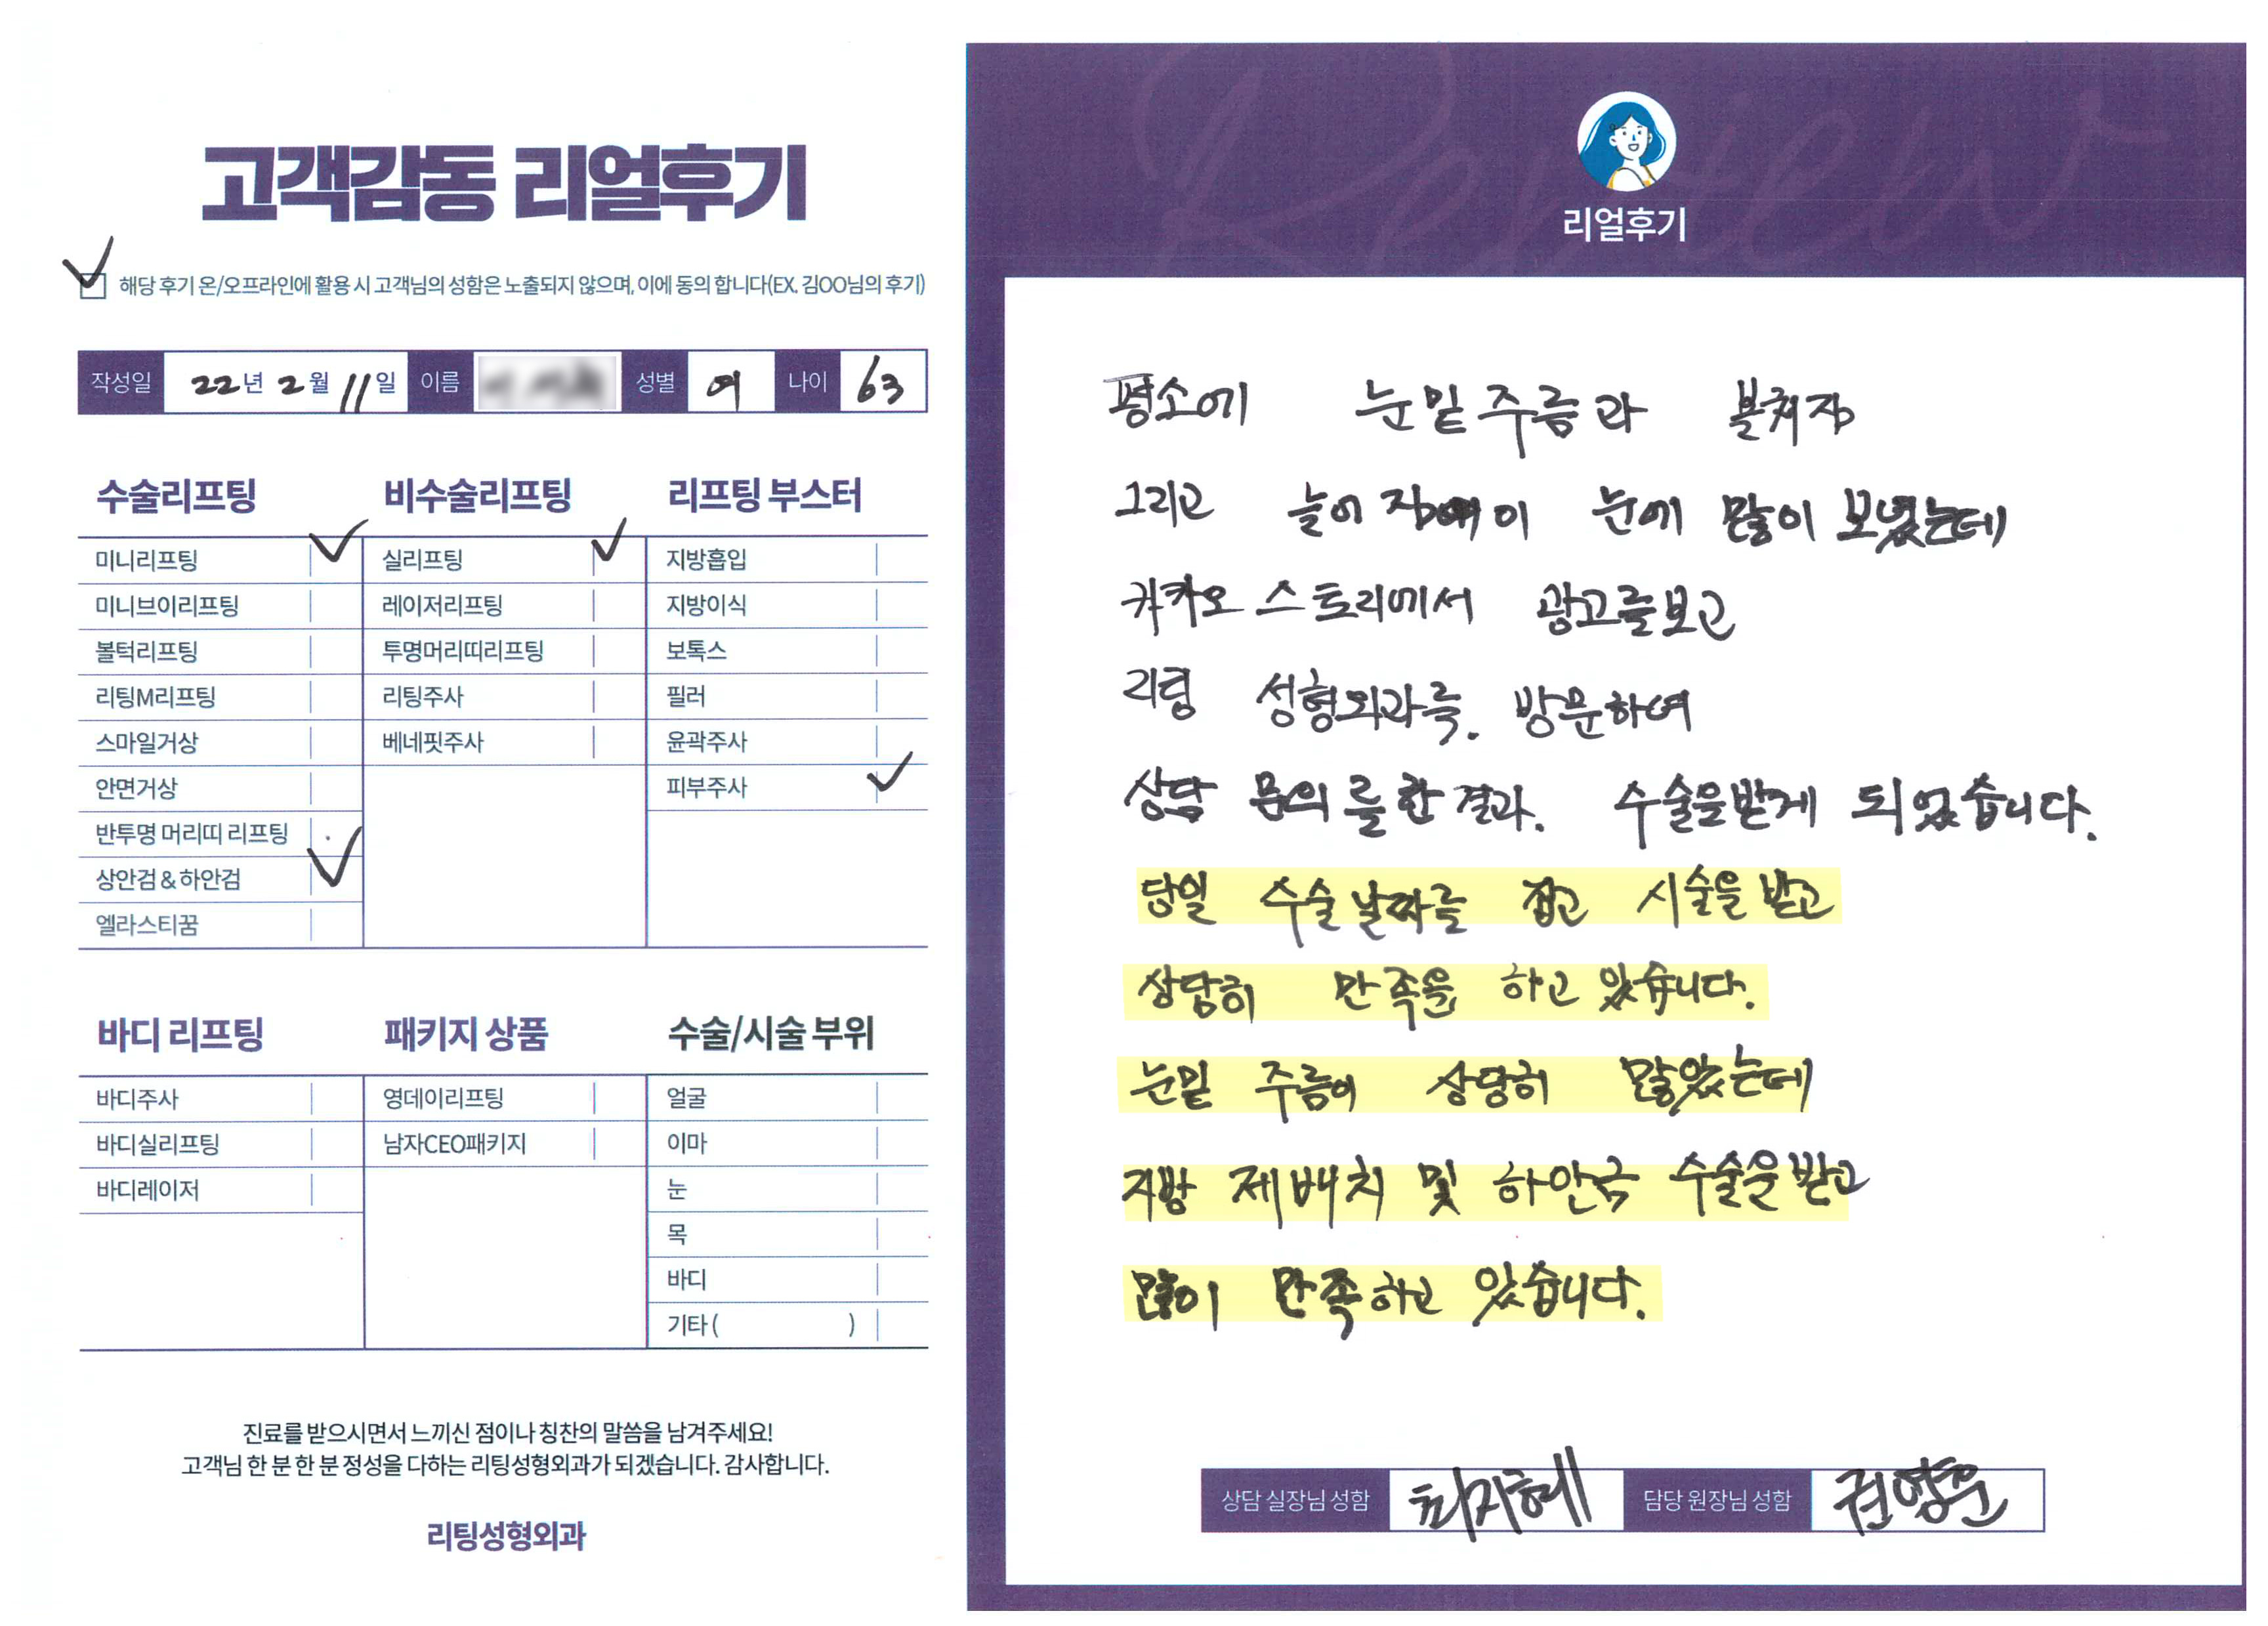 고객감동 리얼후기
해당 후기 온/오프라인에 활용 시 고객님의 성함은 노출되지 않으며, 이에 동의 합니다(EX. 김OO님의 후기)
작성일 22년 2월 11일 이름 성별 여 나이 63
수술리프팅 비수술리프팅 리프팅 부스터
미니리프팅 실리프팅 지방흡입
미니브이리프팅 레이저리프팅 지방이식
볼턱리프팅 투명머리띠리프팅 보톡스
리팅M리프팅 리팅주사 필러
스마일거상 베네핏주사 윤곽주사
안면거상 피부주사
반투명 머리띠 리프팅
상안검 & 하안검
엘라스티꿈
바디 리프팅 패키지 상품 수술/시술 부위
바디주사 영데이리프팅 얼굴
바디실리프팅 남자CEO패키지 이마
바디레이저 눈
목
바디
기타 ( )
진료를 받으시면서 느끼신 점이나 칭찬의 말씀을 남겨주세요!
고객님 한 분 한 분 정성을 다하는 리팅성형외과가 되겠습니다. 감사합니다.
리팅성형외과
리얼후기
평소에 눈밑 주름과 볼쳐짐
그리고 늘어 짐이 눈에 많이 보였는데
카카오 스토리에서 광고를 보고
리팅 성형외과를. 방문하여
상담 문의를 한 결과. 수술을 받게 되었습니다.
당일 수술 날짜를 잡고 시술을 받고
상당히 만족을 하고 있습니다.
눈밑 주름이 상당히 많았는데
지방 제배치 및 하안검 수술을 받고
많이 만족하고 있습니다.
상담 실장님 성함 최지혜 담당 원장님 성함